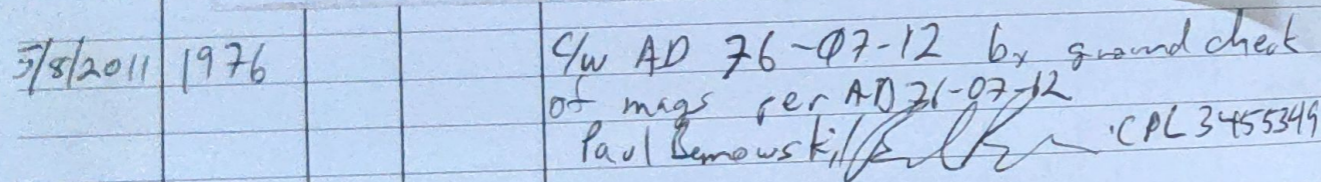 5/8/2011 1976 C/W AD 76-07-12 by ground check
of mags per AD 76-07-12
Paul Bernowski CPL 3455349